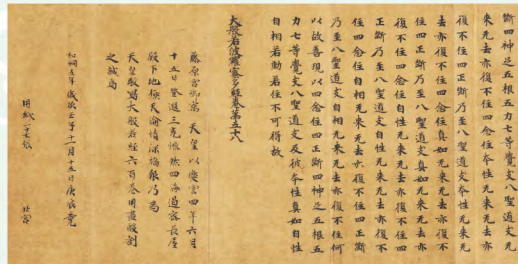 斷四神足五根五力七等覺支八聖道支无
来无去亦復不住四念住本性无来无去亦
復不住四正斷乃至八聖道支本性无来无
去亦復不住四念住真如无来无去亦復不
住四正斷乃至八聖道支真如无来无去亦
復不住四念住自性无来无去亦復不住四
正斷乃至八聖道支自性无来无去亦復不
住四念住自相无来无去亦復不住四正斷
乃至八聖道支自相无来无去亦復不住何
以故善現以四念住四正斷四神足五根五
力七等覺支八聖道支及彼本性真如自性
自相若動若住不可得故
大般若波羅蜜多經卷第五十六
藤原宮御寓 天皇以慶雲四年六月
十五日登遐三光慘然四海遏密長屋
殿下地極天倫情深福報乃爲
天皇敬寫大般若經六百卷用盡酸割
之誠焉
和銅五年歲次壬子十一月十五日庚辰竟
用紙 張 北宮